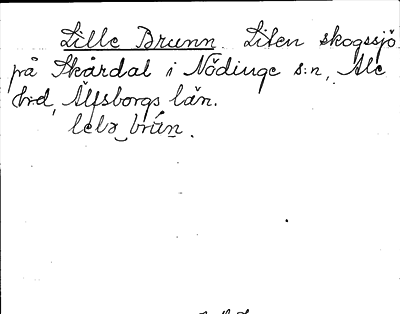 Lille Brunn. Liten skogssjö
på Skårdal i Nödinge s:n, Ale
hrd, Älfsborgs län.
lelə‿brún.